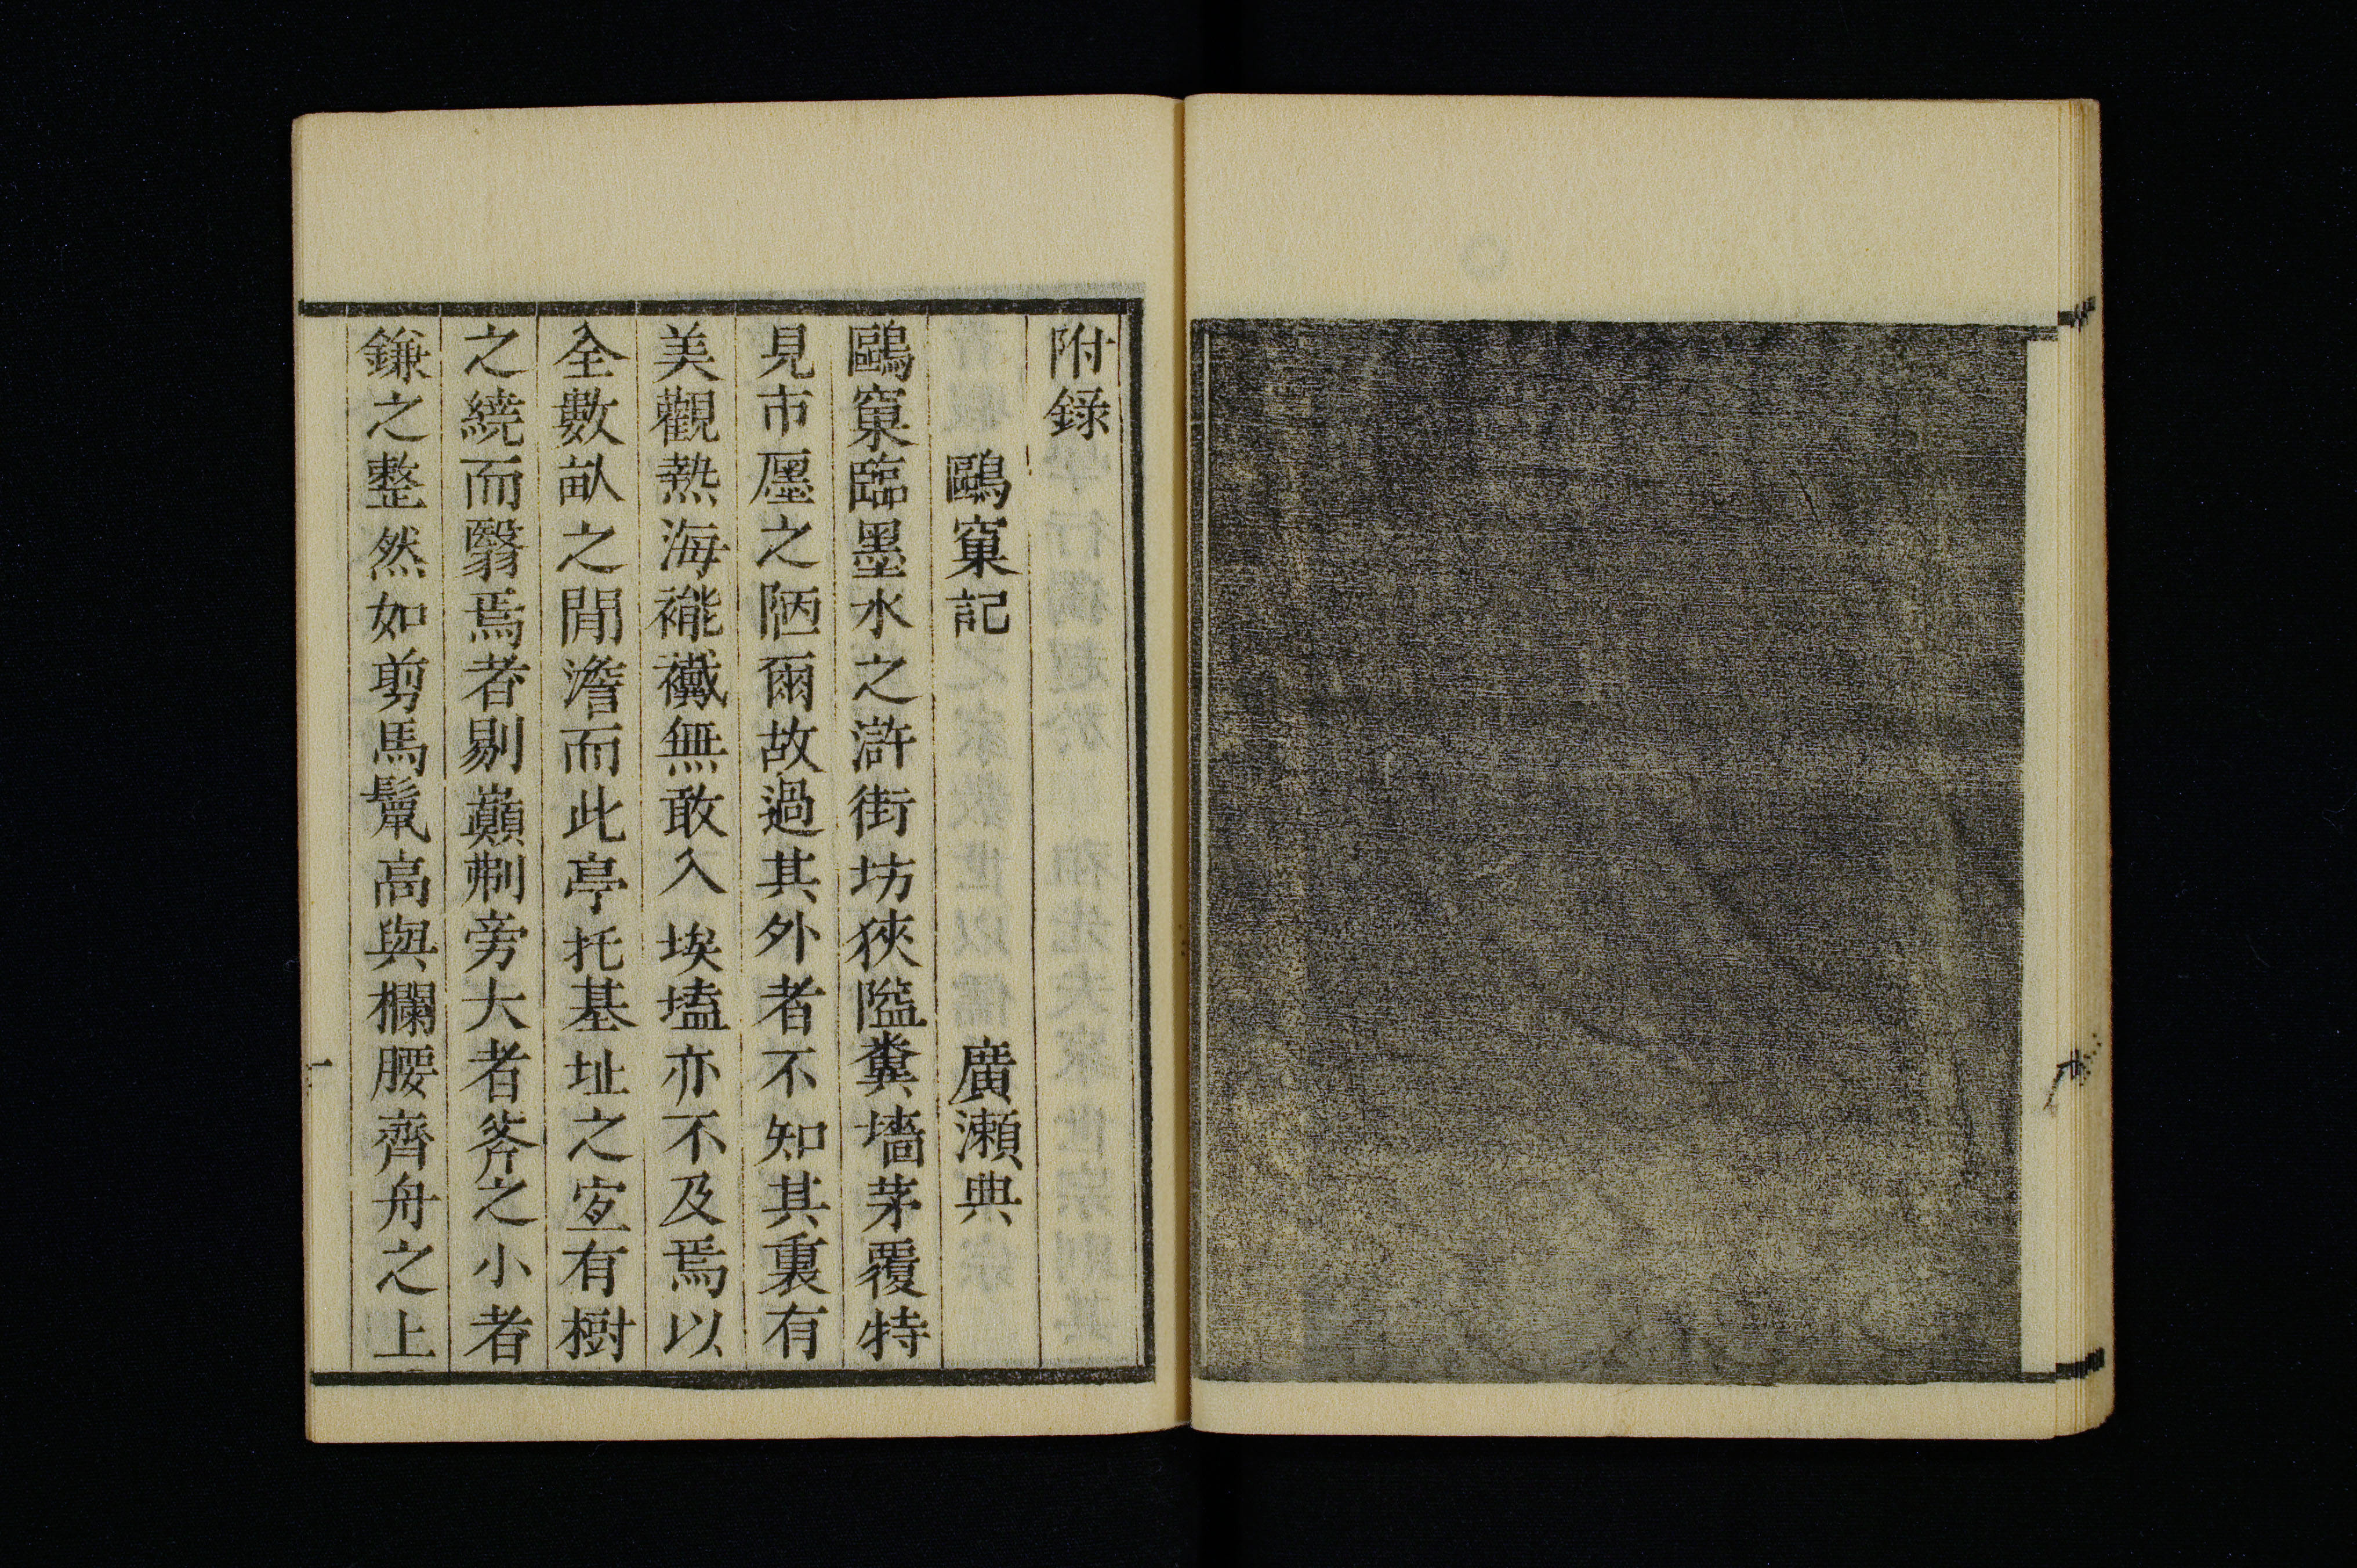 附錄
鷗窠記 廣瀨典
鷗窠臨墨水之滸街坊狹隘糞墻茅覆特
見市廛之陋爾故過其外者不知其裏有
美觀熱海褦襶無敢入埃壒亦不及焉以
全數畝之閒澹而此亭托基址之寔有樹
之繞而翳焉者剔巔剃旁大者斧之小者
鎌之整然如剪馬鬣高與欄腰齊舟之上
一